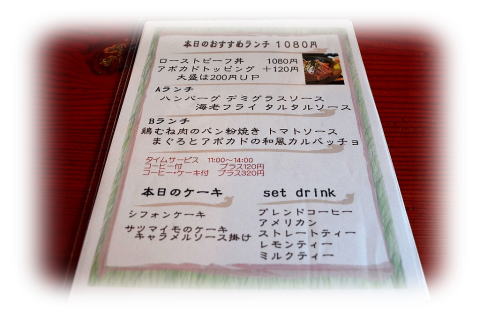 本日のおすすめランチ 1080円
ローストビーフ丼 1080円
アボカドトッピング +120円
大盛は200円UP
Aランチ
ハンバーグ デミグラスソース
海老フライ タルタルソース
Bランチ
鶏むね肉のパン粉焼き トマトソース
まぐろとアボカドの和風カルパッチョ
タイムサービス 11:00～14:00
コーヒー付 プラス120円
コーヒー・ケーキ付 プラス320円
本日のケーキ
シフォンケーキ
サツマイモのケーキ
キャラメルソース掛け
set drink
ブレンドコーヒー
アメリカン
ストレートティー
レモンティー
ミルクティー